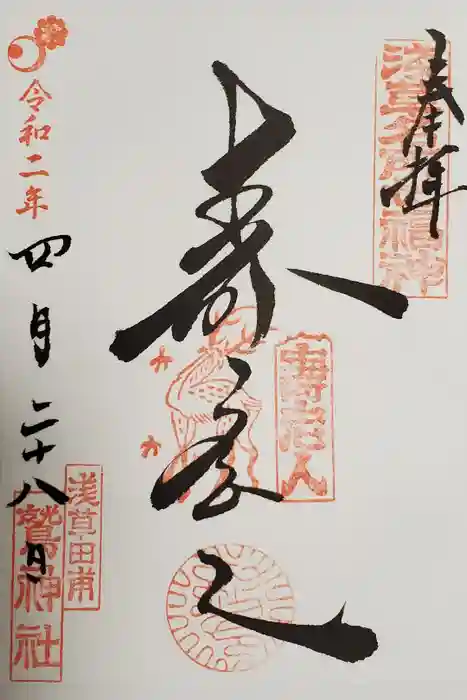 奉拝
浅草名所七福神
寿老人
寿老人
令和二年
四月二十八日
浅草田甫
鷲神社